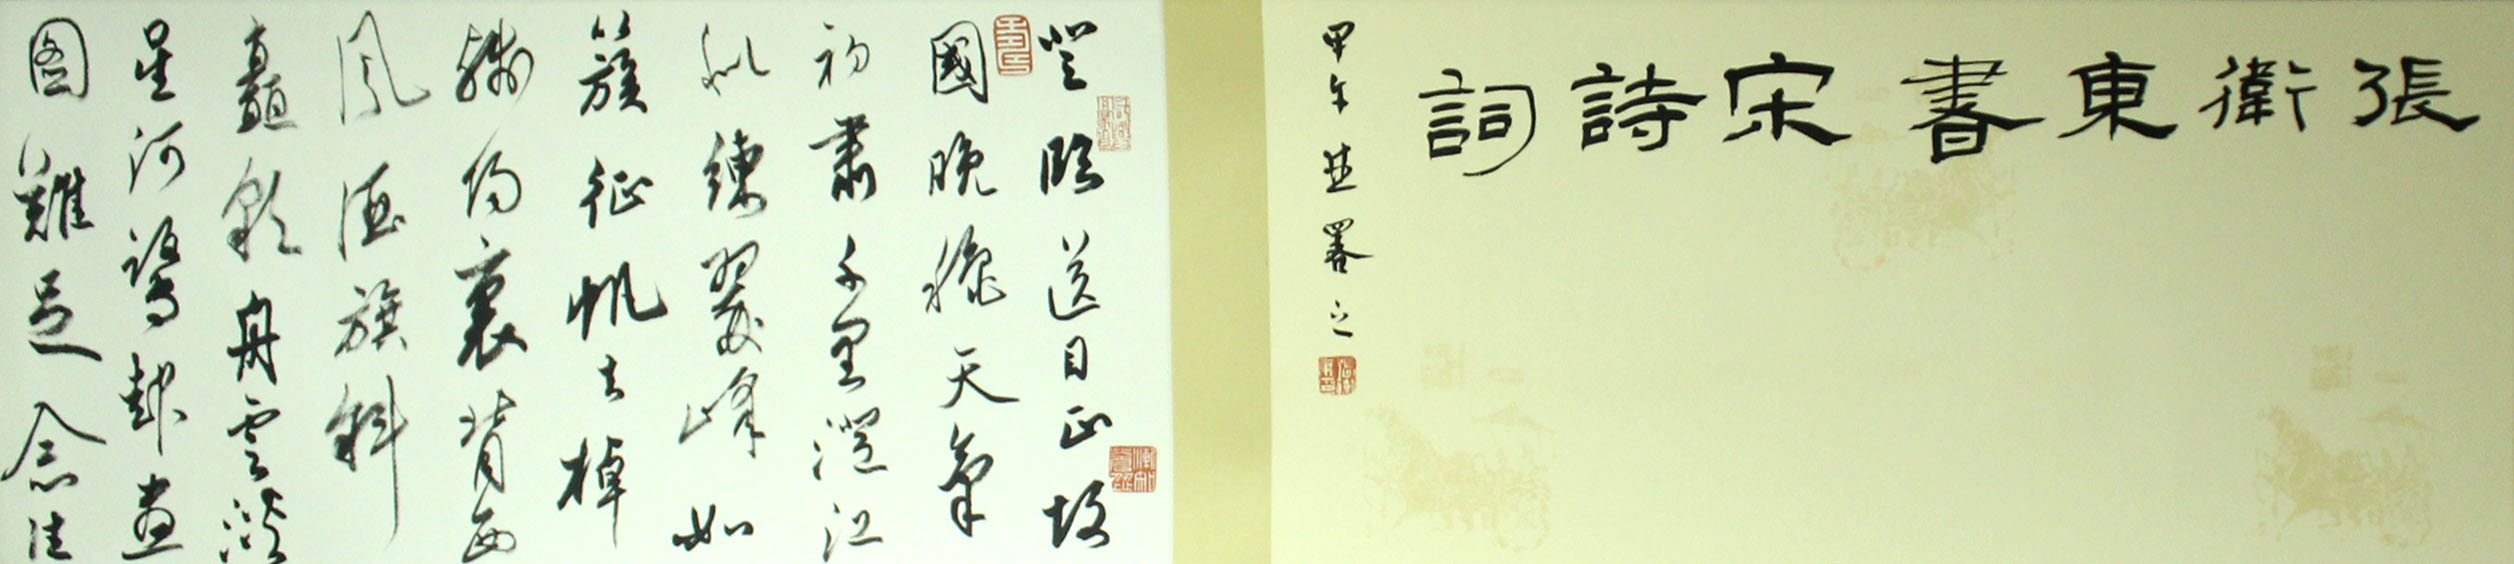 張衛東書宋詩詞
甲午署之
登臨送目正故
國晚穐天氣
初肅千里澄江
似練翠峰如
簇征帆去棹
殘陽裏背西
風酒旗斜
矗彩舟雲淡
星河鷺起畫
圖難足念往